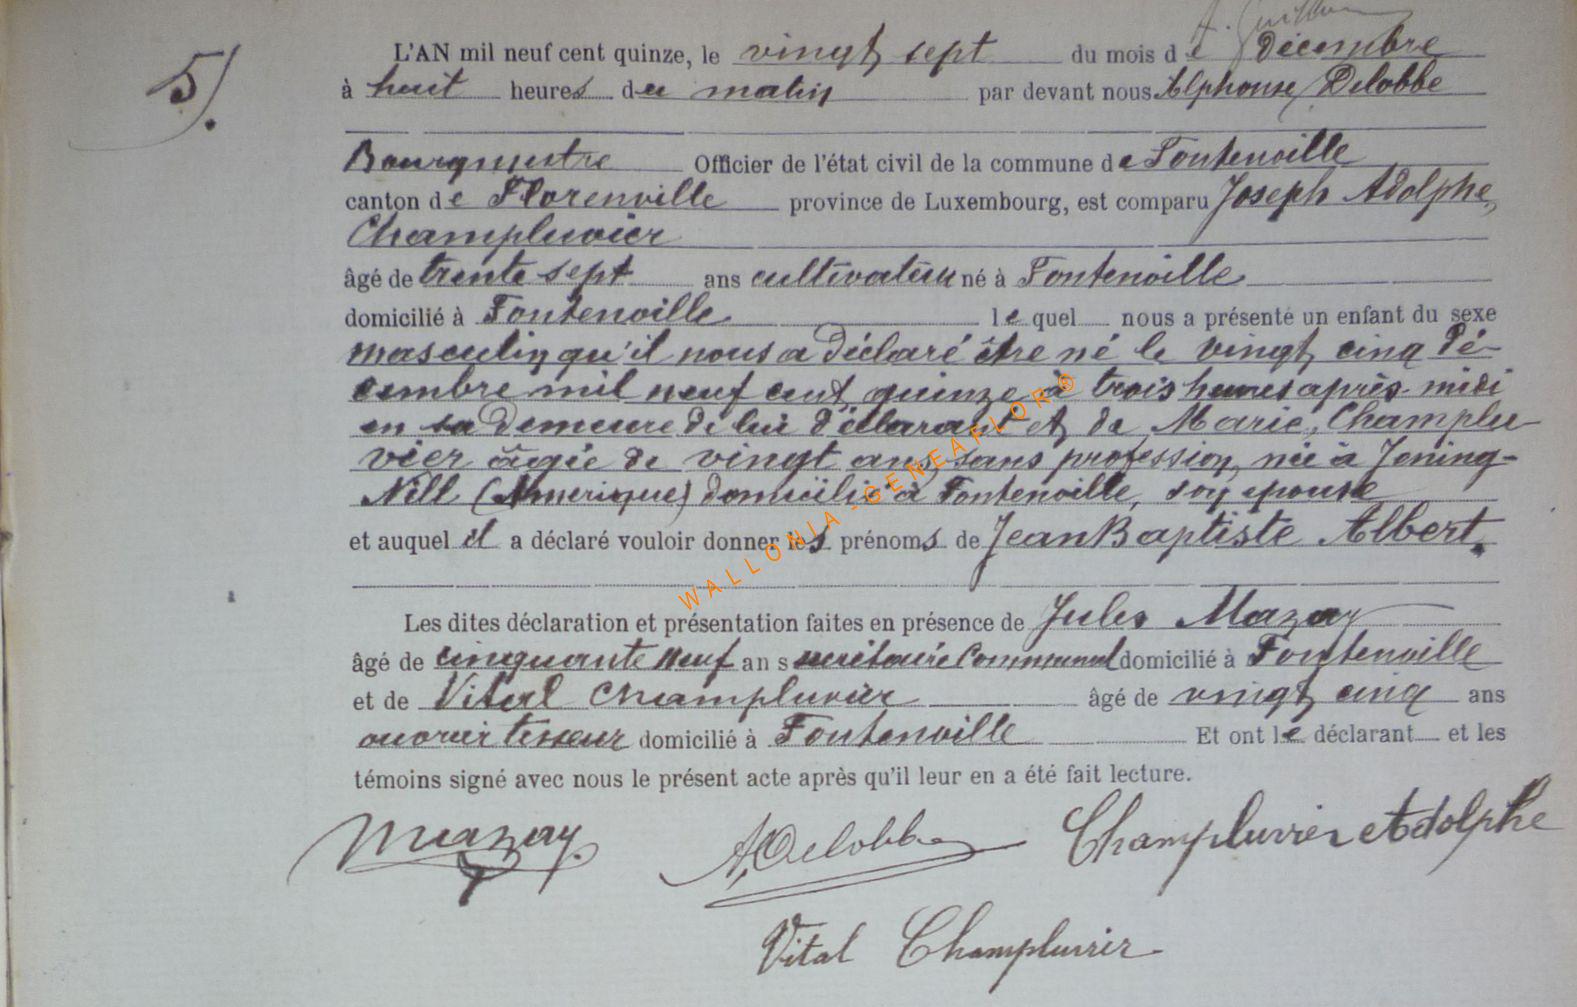 5/.
L'AN mil neuf cent quinze, le vingt sept du mois de Décembre
à huit heures du matin par devant nous Alphonse Delobbe
Bourgmestre Officier de l'état civil de la commune de Fontenoille
canton de Florenville province de Luxembourg, est comparu Joseph Adolphe,
Champluvier
âgé de trente sept ans cultivateur né à Fontenoille
domicilié à Fontenoille lequel nous a présenté un enfant du sexe
masculin qu'il nous a déclaré être né le vingt cinq Dé-
cembre mil neuf cent quinze à trois heures après-midi
en sa demeure de lui déclarant et de Marie, Champlu-
vier âgée de vingt ans, sans profession, née à Joning-
Nill (Amérique) domicilié à Fontenoille, son épouse
et auquel il a déclaré vouloir donner les prénoms de Jean Baptiste Albert.
Les dites déclaration et présentation faites en présence de Jules Mazay
âgé de cinquante neuf ans secrétaire Communal domicilié à Fontenoille
et de Vital Champluvier âgé de vingt cinq ans
ouvrier domicilié à Fontenoille Et ont le déclarant et les
témoins signé avec nous le présent acte après qu'il leur en a été fait lecture.
Mazay. A, Delobbe Champluvier Adolphe
Vital Champluvier
WALLONIA - GENEAFLOR®